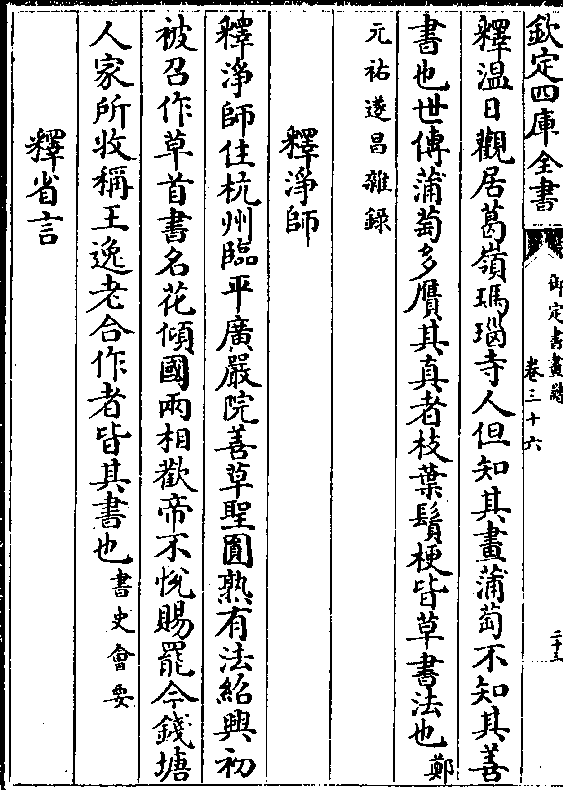 欽定四庫全書
御定書畫譜
卷三十六
二十三
釋温日觀居葛嶺瑪瑙寺人但知其畫蒲萄不知其善
書也世傳蒲萄多贋其真者枝葉鬚梗皆草書法也鄭
元祐遂昌雜錄
釋淨師
釋淨師住杭州臨平廣嚴院善草聖圓熟有法紹興初
被召作草首書名花傾國兩相歡帝不悅賜罷今錢塘
人家所收稱王逸老合作者皆其書也書史會要
釋省言